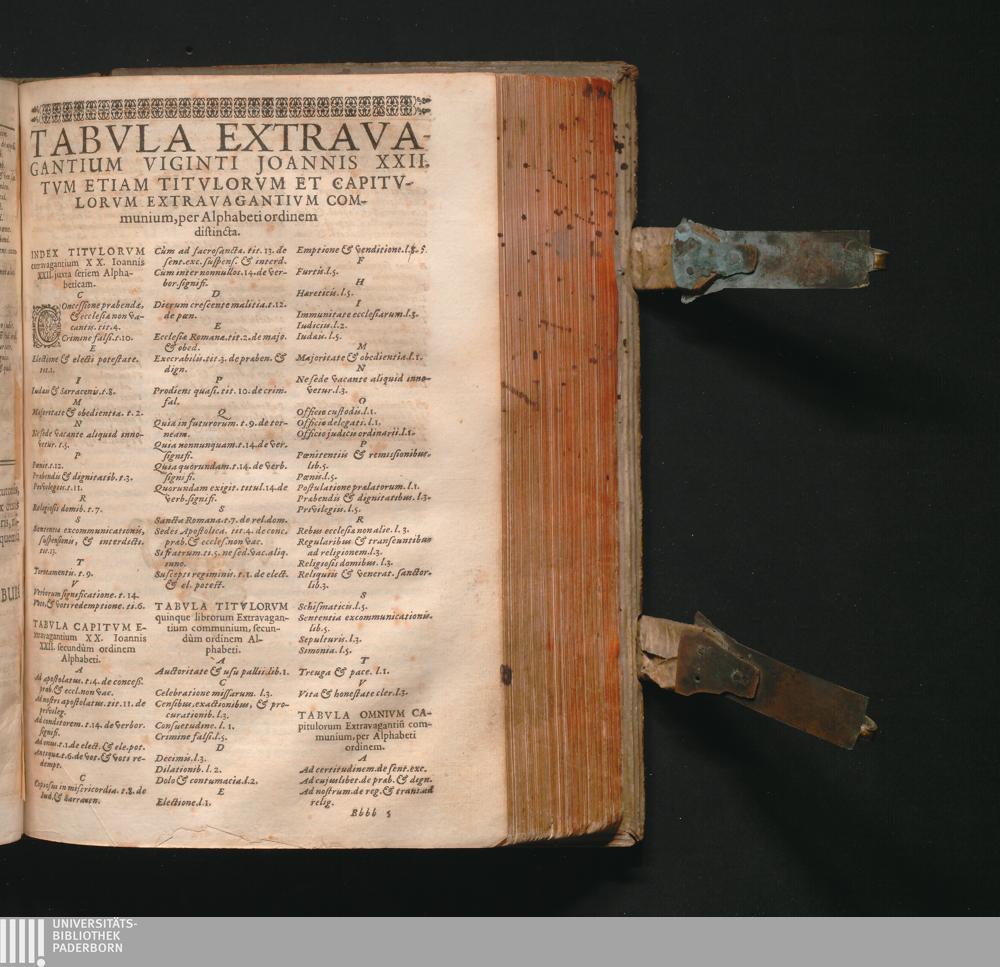 TABVLA EXTRAVA-
GANTIUM VIGINTI JOANNIS XXII.
TVM ETIAM TITVLORVM ET CAPITV-
LORVM EXTRAVAGANTIVM COM-
munium, per Alphabeti ordinem
distincta.
INDEX TITVLORVM
extravagantium XX. Ioannis
XXII. juxta seriem Alpha-
beticam.
C
Oncessione præbendæ,
& ecclesiæ non va-
cantis. tit. 4.
Crimine falsi. t. 10.
E
Electione & electi potestate.
tit. 1.
I
Iudæis & Sarracenis. t. 8.
M
Majoritate & obedientia. t. 2.
N
Ne sede vacante aliquid inno-
vetur. t. 5.
P
Pœnis. t. 12.
Præbendis & dignitatib. t. 3.
Privilegiis. t. 11.
R
Religiosis domib. t. 7.
S
Sententia excommunicationis,
suspensionis, & interdicti.
tit. 13.
T
Torneamentis. t. 9.
V
Verborum significatione. t. 14.
Voto, & voti redemptione. ti. 6.
TABVLA CAPITVM E-
xtravagantium XX. Ioannis
XXII. secundùm ordinem
Alphabeti.
A
Ad apostolatus. t. 4. de concess.
præb. & eccl. non vac.
Ad nostri apostolatus. tit. 11. de
privileg.
Ad conditorem. t. 14. de verbor.
signifi.
Ad onus. t. 1. de elect. & ele. pot.
Antiquæ. t. 6. de vot. & voti re-
dempt.
C
Copiosus in misericordia. t. 8. de
Iud. & Sarracen.
Cùm ad sacrosancta. tit. 13. de
sent. exc. suspens. & interd.
Cùm inter nonnullos. 14. de ver-
bor. signifi.
D
Dierum crescente malitia. t. 12.
de pœn.
E
Ecclesiæ Romanæ. tit. 2. de majo.
& obed.
Execrabilis. tit. 3. de præben. &
dign.
P
Prodiens quasi. tit. 10. de crim.
fal.
Q
Quia in futurorum. t. 9. de tor-
neam.
Quia nonnunquam. t. 14. de ver.
signifi.
Quia quorundam. t. 14. de verb.
signifi.
Quorundam exigit. titul. 14. de
verb. signifi.
S
Sancta Romana. t. 7. de rel. dom.
Sedes Apostolica. tit. 4. de conc.
præb. & eccles. non vac.
Si fratrum. ti. 5. ne sed. vac. aliq.
inno.
Suscepti regiminis. t. 1. de elect.
& el. potest.
TABVLA TITVLORVM
quinque librorum Extravagan-
tium communium, secun-
dùm ordinem Al-
phabeti.
A
Auctoritate & usu pallii. lib. 1.
C
Celebratione missarum. l. 3.
Censibus, exactionibus, & pro-
curationib. l. 3.
Consuetudine. l. 1.
Crimine falsi. l. 5.
D
Decimis. l. 3.
Dilationib. l. 2.
Dolo & contumacia. l. 2.
E
Electione. l. 1.
Emptione & venditione. l. 5.
F
Furtis. l. 5.
H
Hæreticis. l. 5.
I
Immunitate ecclesiarum. l. 3.
Iudiciis. l. 2.
Iudæis. l. 5.
M
Majoritate & obedientia. l. 1.
N
Ne sede vacante aliquid inno-
vetur. l. 3.
O
Officio custodis. l. 1.
Officio delegati. l. 1.
Officio judicis ordinarii. l. 1.
P
Pœnitentiis & remissionibus.
lib. 5.
Pœnis. l. 5.
Postulatione prælatorum. l. 1.
Præbendis & dignitatibus. l. 3.
Privilegiis. l. 5.
R
Rebus ecclesiæ non alie. l. 3.
Regularibus & transeuntibus
ad religionem. l. 3.
Religiosis domibus. l. 3.
Reliquiis & venerat. sanctor.
lib. 3.
S
Schismaticis. l. 5.
Sententia excommunicationis.
lib. 5.
Sepulturis. l. 3.
Simonia. l. 5.
T
Treuga & pace. l. 1.
V
Vita & honestate cler. l. 3.
TABVLA OMNIVM CA-
pitulorum Extravagantiũ com-
munium, per Alphabeti
ordinem.
A
Ad certitudinem. de sent. exc.
Ad cujuslibet. de præb. & dign.
Ad nostrum. de reg. & trans. ad
relig.
Bbbb 5
UNIVERSITÄTS-
BIBLIOTHEK
PADERBORN